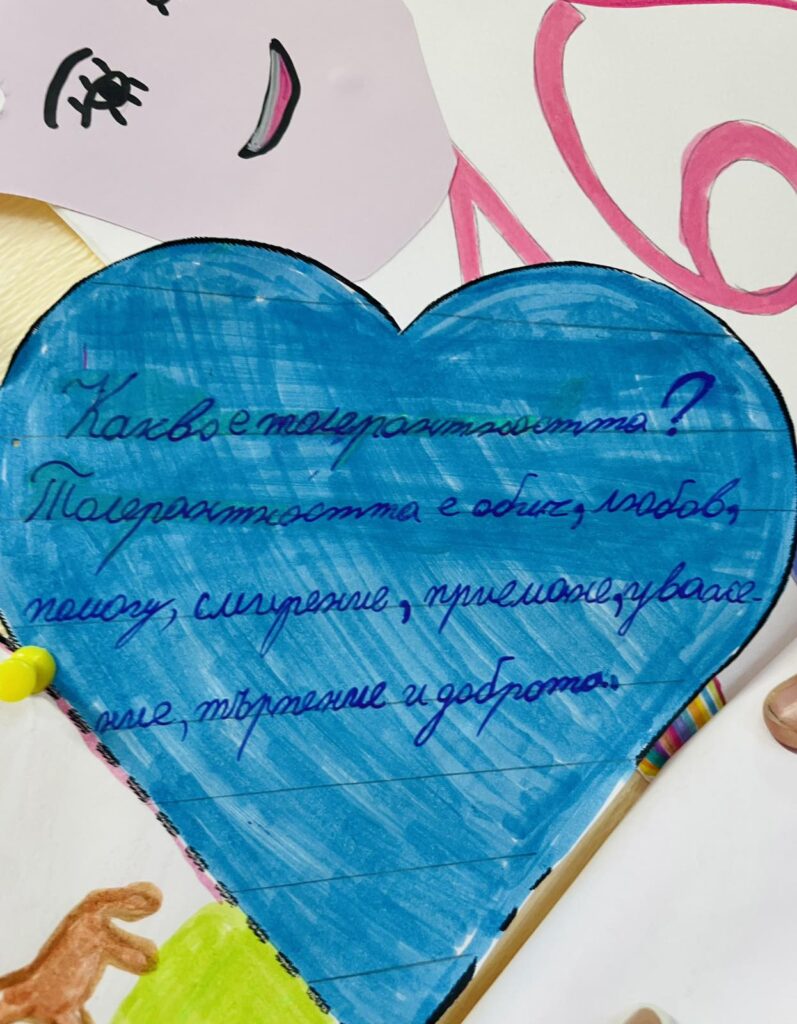 Какво е толерантността?
Толерантността е обич, любов,
помощ, смирение, приемане, уваже-
ние, търпение и доброта.